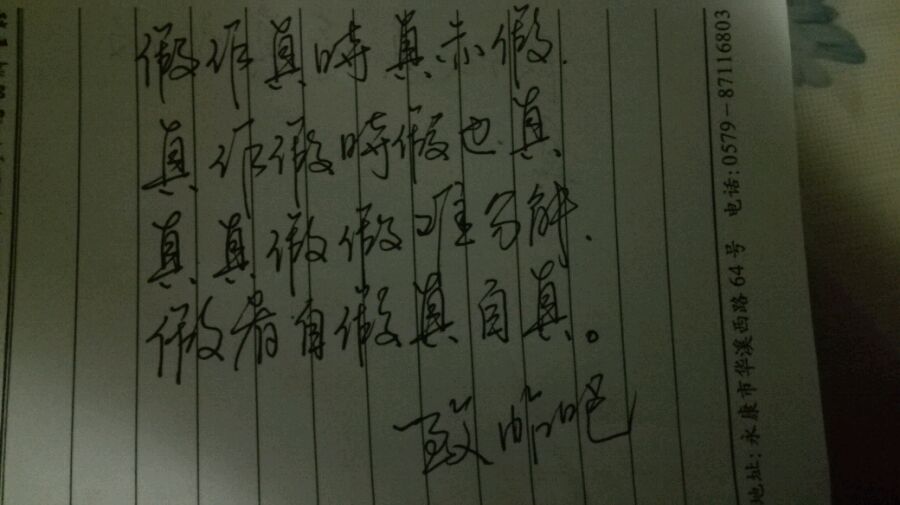 假作真時真亦假.
真作假時假也真
真真假假难分解.
假者自假真自真。
致
地址:永康市华溪西路64号 电话:0579-87116803